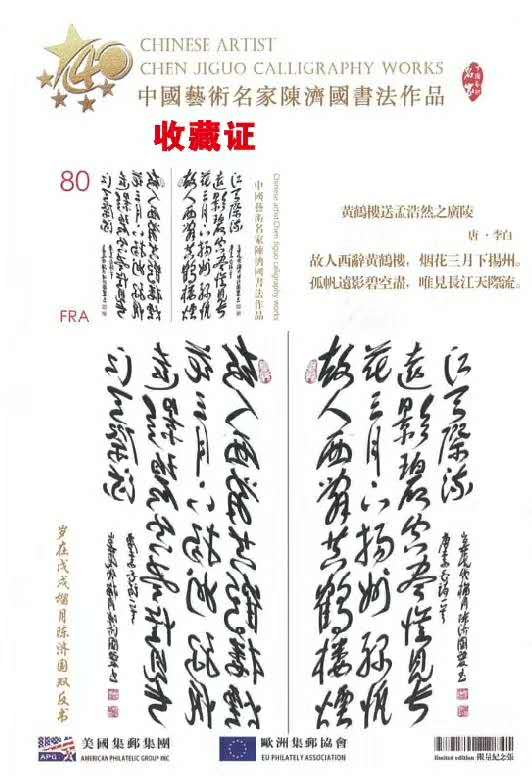 40
CHINESE ARTIST
CHEN JIGUO CALLIGRAPHY WORKS
中國藝術名家陳濟國書法作品
收藏证
80
FRA
中國藝術名家陳濟國書法作品
Chinese artist.Chen Jiguo calligraphy works
黃鶴樓送孟浩然之廣陵
唐·李白
故人西辭黃鶴樓，烟花三月下揚州。
孤帆遠影碧空盡，唯見長江天際流。
故人西辞黄鹤楼烟
花三月下扬州孤帆
远影碧空尽惟见长
江天际流
岁在戊戌榴月陈济国双反书
APG
美國集郵集團
AMERICAN PHILATELIC GROUP INC
歐洲集郵協會
EU PHILATELY ASSOCIATION
limited edition 限量紀念張